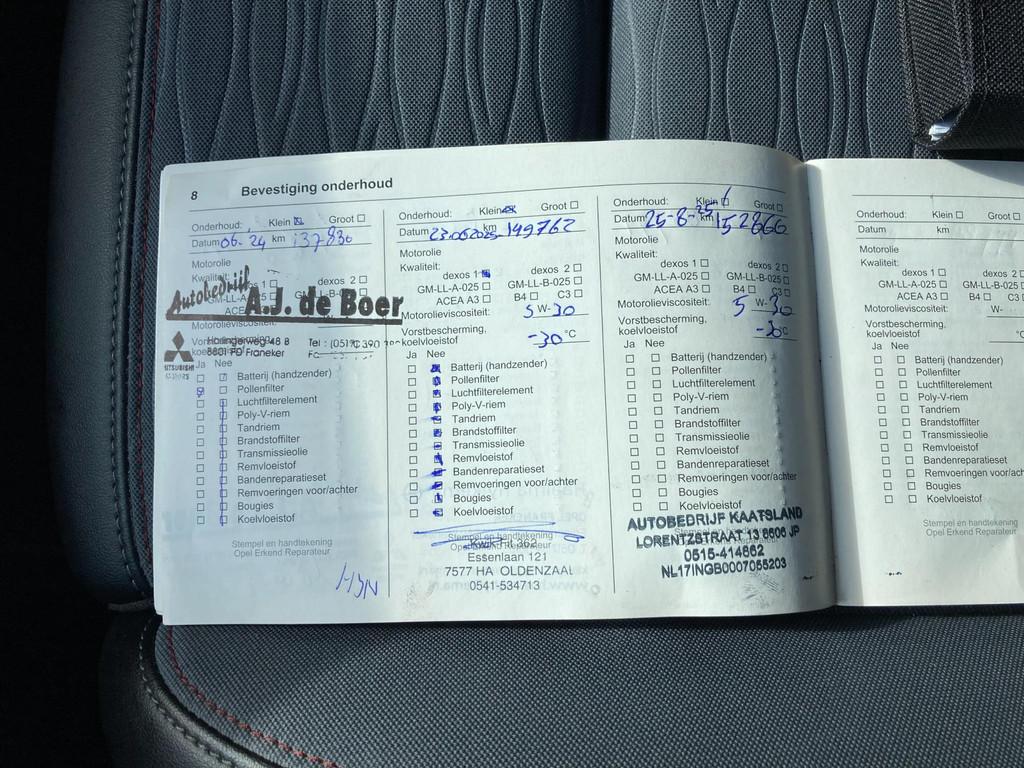 8 Bevestiging onderhoud
Onderhoud: Klein Groot
Datum 06-24 km 137830
Motorolie
Kwaliteit:
Autobedrijf
A.J. de Boer
Motorolieviscositeit:
Harlingerweg 48 B Tel : (0519)
8801 PD Franeker
MITSUBISHI
MOTORS
Ja Nee
Batterij (handzender)
Pollenfilter
Luchtfilterelement
Poly-V-riem
Tandriem
Brandstoffilter
Transmissieolie
Remvloeistof
Bandenreparatieset
Remvoeringen voor/achter
Bougies
Koelvloeistof
Stempel en handtekening
Opel Erkend Reparateur
Onderhoud: Klein Groot
Datum 23.06.2025 km 149762
Motorolie
Kwaliteit:
dexos 1 dexos 2
GM-LL-A-025 GM-LL-B-025
ACEA A3 B4 C3
Motorolieviscositeit: 5 W- 30
Vorstbescherming,
koelvloeistof -30 °C
Ja Nee
Batterij (handzender)
Pollenfilter
Luchtfilterelement
Poly-V-riem
Tandriem
Brandstoffilter
Transmissieolie
Remvloeistof
Bandenreparatieset
Remvoeringen voor/achter
Bougies
Koelvloeistof
Stempel en handtekening
Opel Erkend Reparateur
KwikFit 362
Essenlaan 121
7577 HA OLDENZAAL
0541-534713
Onderhoud: Klein Groot
Datum 25-8-25 km 152866
Motorolie
Kwaliteit:
dexos 1 dexos 2
GM-LL-A-025 GM-LL-B-025
ACEA A3 B4 C3
Motorolieviscositeit: 5 W- 30
Vorstbescherming,
koelvloeistof -30 °C
Ja Nee
Batterij (handzender)
Pollenfilter
Luchtfilterelement
Poly-V-riem
Tandriem
Brandstoffilter
Transmissieolie
Remvloeistof
Bandenreparatieset
Remvoeringen voor/achter
Bougies
Koelvloeistof
AUTOBEDRIJF KAATSLAND
Stempel en handtekening
LORENTZSTRAAT 13 8606 JP
0515-414862
NL17INGB0007055203
Onderhoud: Klein Groot
Datum km
Motorolie
Kwaliteit:
dexos 1 dexos 2
GM-LL-A-025 GM-LL-B-025
ACEA A3 B4 C3
Motorolieviscositeit: W-
Vorstbescherming,
koelvloeistof
Ja Nee
Batterij (handzender)
Pollenfilter
Luchtfilterelement
Poly-V-riem
Tandriem
Brandstoffilter
Transmissieolie
Remvloeistof
Bandenreparatieset
Remvoeringen voor/achter
Bougies
Koelvloeistof
Stempel en handtekening
Opel Erkend Reparateur